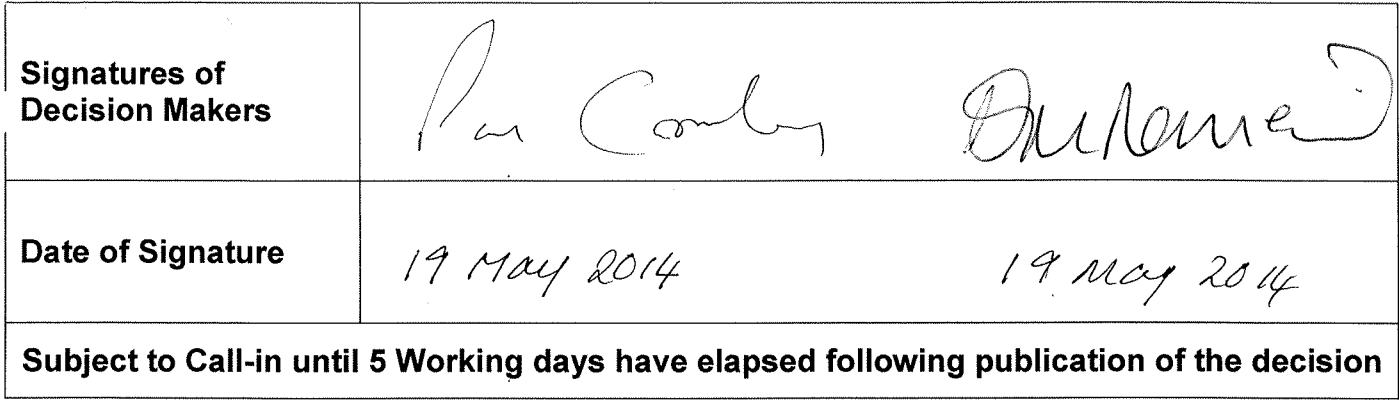 Signatures of
Decision Makers
Date of Signature
19 May 2014 19 May 2014
Subject to Call-in until 5 Working days have elapsed following publication of the decision